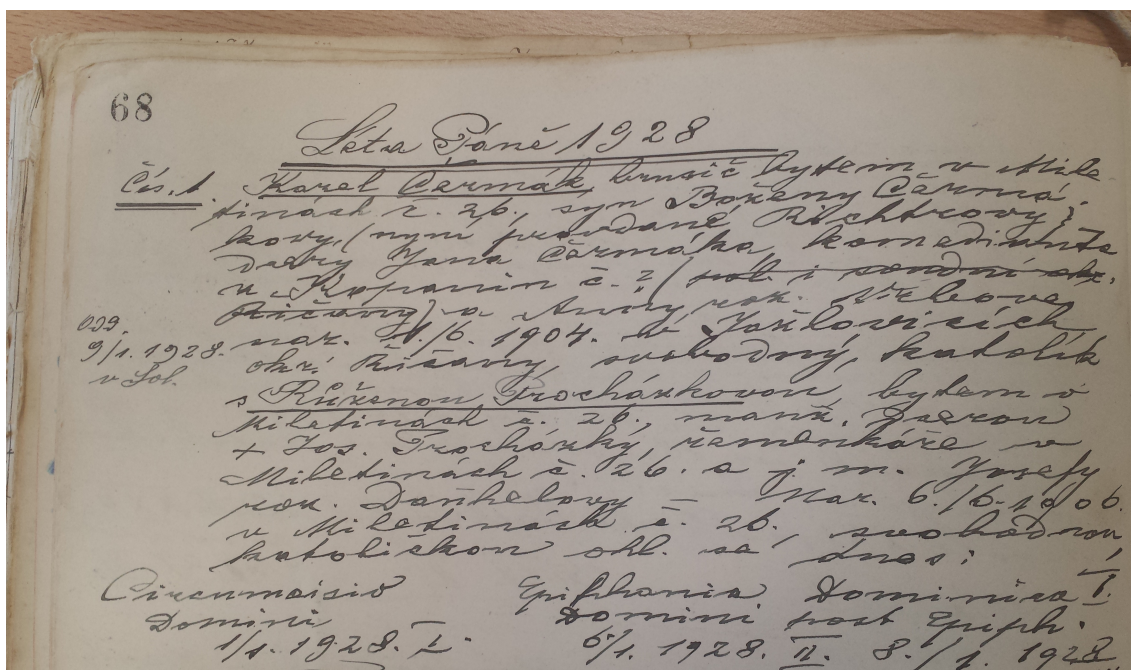 68
Léta Páně 1928
Čís. 1. Karel Čermák, brusič bytem v Mile
tinách č. 26., syn Boženy Čermá
kovy, (nyní provdané Richtrovy)
dcery Jana Čermáka, komedianta
z Kopanin č. ? (pol. i soudní okr.
Říčany) a Anny roz. Vrbové,
nar. 4./6. 1904. v Jažlovicích,
okr. Říčany, svobodný, katolík
odd.
9/1. 1928.
v Sol.
s Růženou Procházkovou, bytem v
Miletinách č. 26., manž. dcerou
+ Jos. Procházky, řemenkáře v
Miletinách č. 26. a j. m. Josefy
roz. Daňhelovy – Nar. 6./6. 1906.
v Miletinách č. 26., svobodnou,
katoličkou ohl. se dnes:
Circumcisio Epiphania Dominica I.
Domini Domini post Epiph.
1/1. 1928. I. 6/1. 1928. II. 8./1. 1928